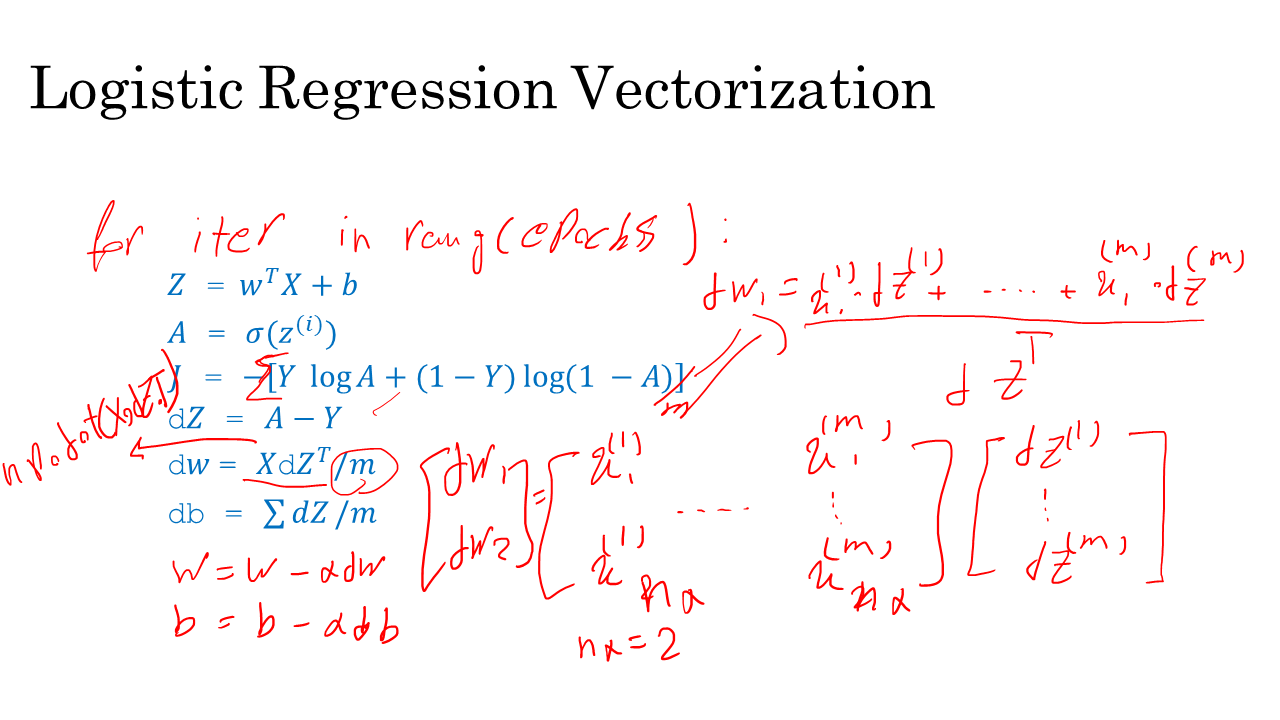 Logistic Regression Vectorization
for iter in rang(epochs):
Z = wᵀX + b
A = σ(z⁽ⁱ⁾)
J = −Σ[Y log A + (1 − Y) log(1 − A)]/m
dZ = A − Y
dw = XdZᵀ/m
db = ∑ dZ /m
w = w − αdw
b = b − αdb
np.dot(X,dZ.T)
dw₁ = x₁⁽¹⁾·dz⁽¹⁾ + ..... + x₁⁽ᵐ⁾·dz⁽ᵐ⁾
dZᵀ
[dw₁ dw₂] = [x₁⁽¹⁾ ..... x₁⁽ᵐ⁾ ⋮ x⁽¹⁾nx x⁽ᵐ⁾nx] [dz⁽¹⁾ ⋮ dz⁽ᵐ⁾]
nx = 2